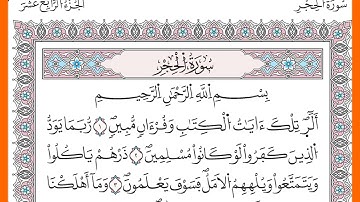 سُورَةُ الحِجْرِ
الجُزْءُ الرَّابِعَ عَشَرَ
سُورَةُ الْحِجْرِ
بِسْمِ اللَّهِ الرَّحْمَٰنِ الرَّحِيمِ
الٓرۚ تِلْكَ ءَايَٰتُ الْكِتَٰبِ وَقُرْءَانٍ مُّبِينٍ ١ رُّبَمَا يَوَدُّ
الَّذِينَ كَفَرُوا لَوْ كَانُوا مُسْلِمِينَ ٢ ذَرْهُمْ يَأْكُلُوا
وَيَتَمَتَّعُوا وَيُلْهِهِمُ الْأَمَلُ فَسَوْفَ يَعْلَمُونَ ٣ وَمَا أَهْلَكْنَا